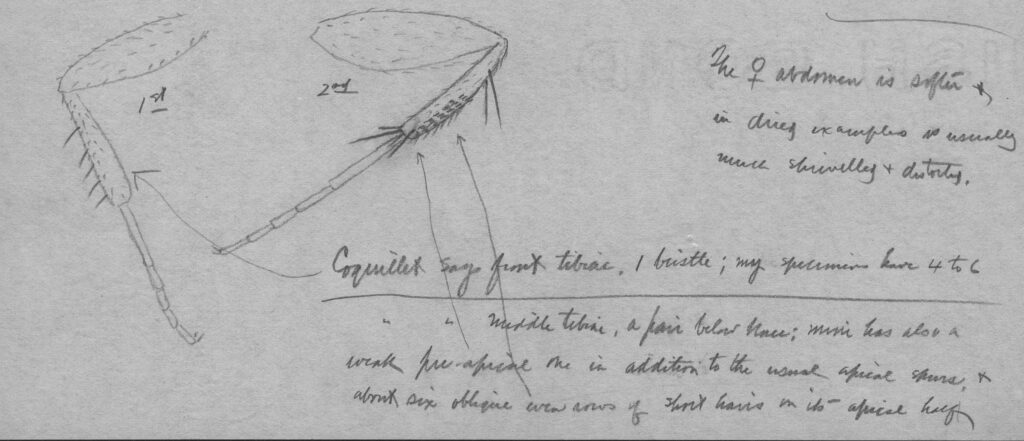 1st
2nd
The ♀ abdomen is softer &
in dried examples is usually
much shrivelled & distorted.
Coquillet says front tibiae, 1 bristle; my specimens have 4 to 6
" " middle tibiae, a pair below knee; mine has also a
weak pre-apical one in addition to the usual apical spurs, &
about six oblique even rows of short hairs on its apical half